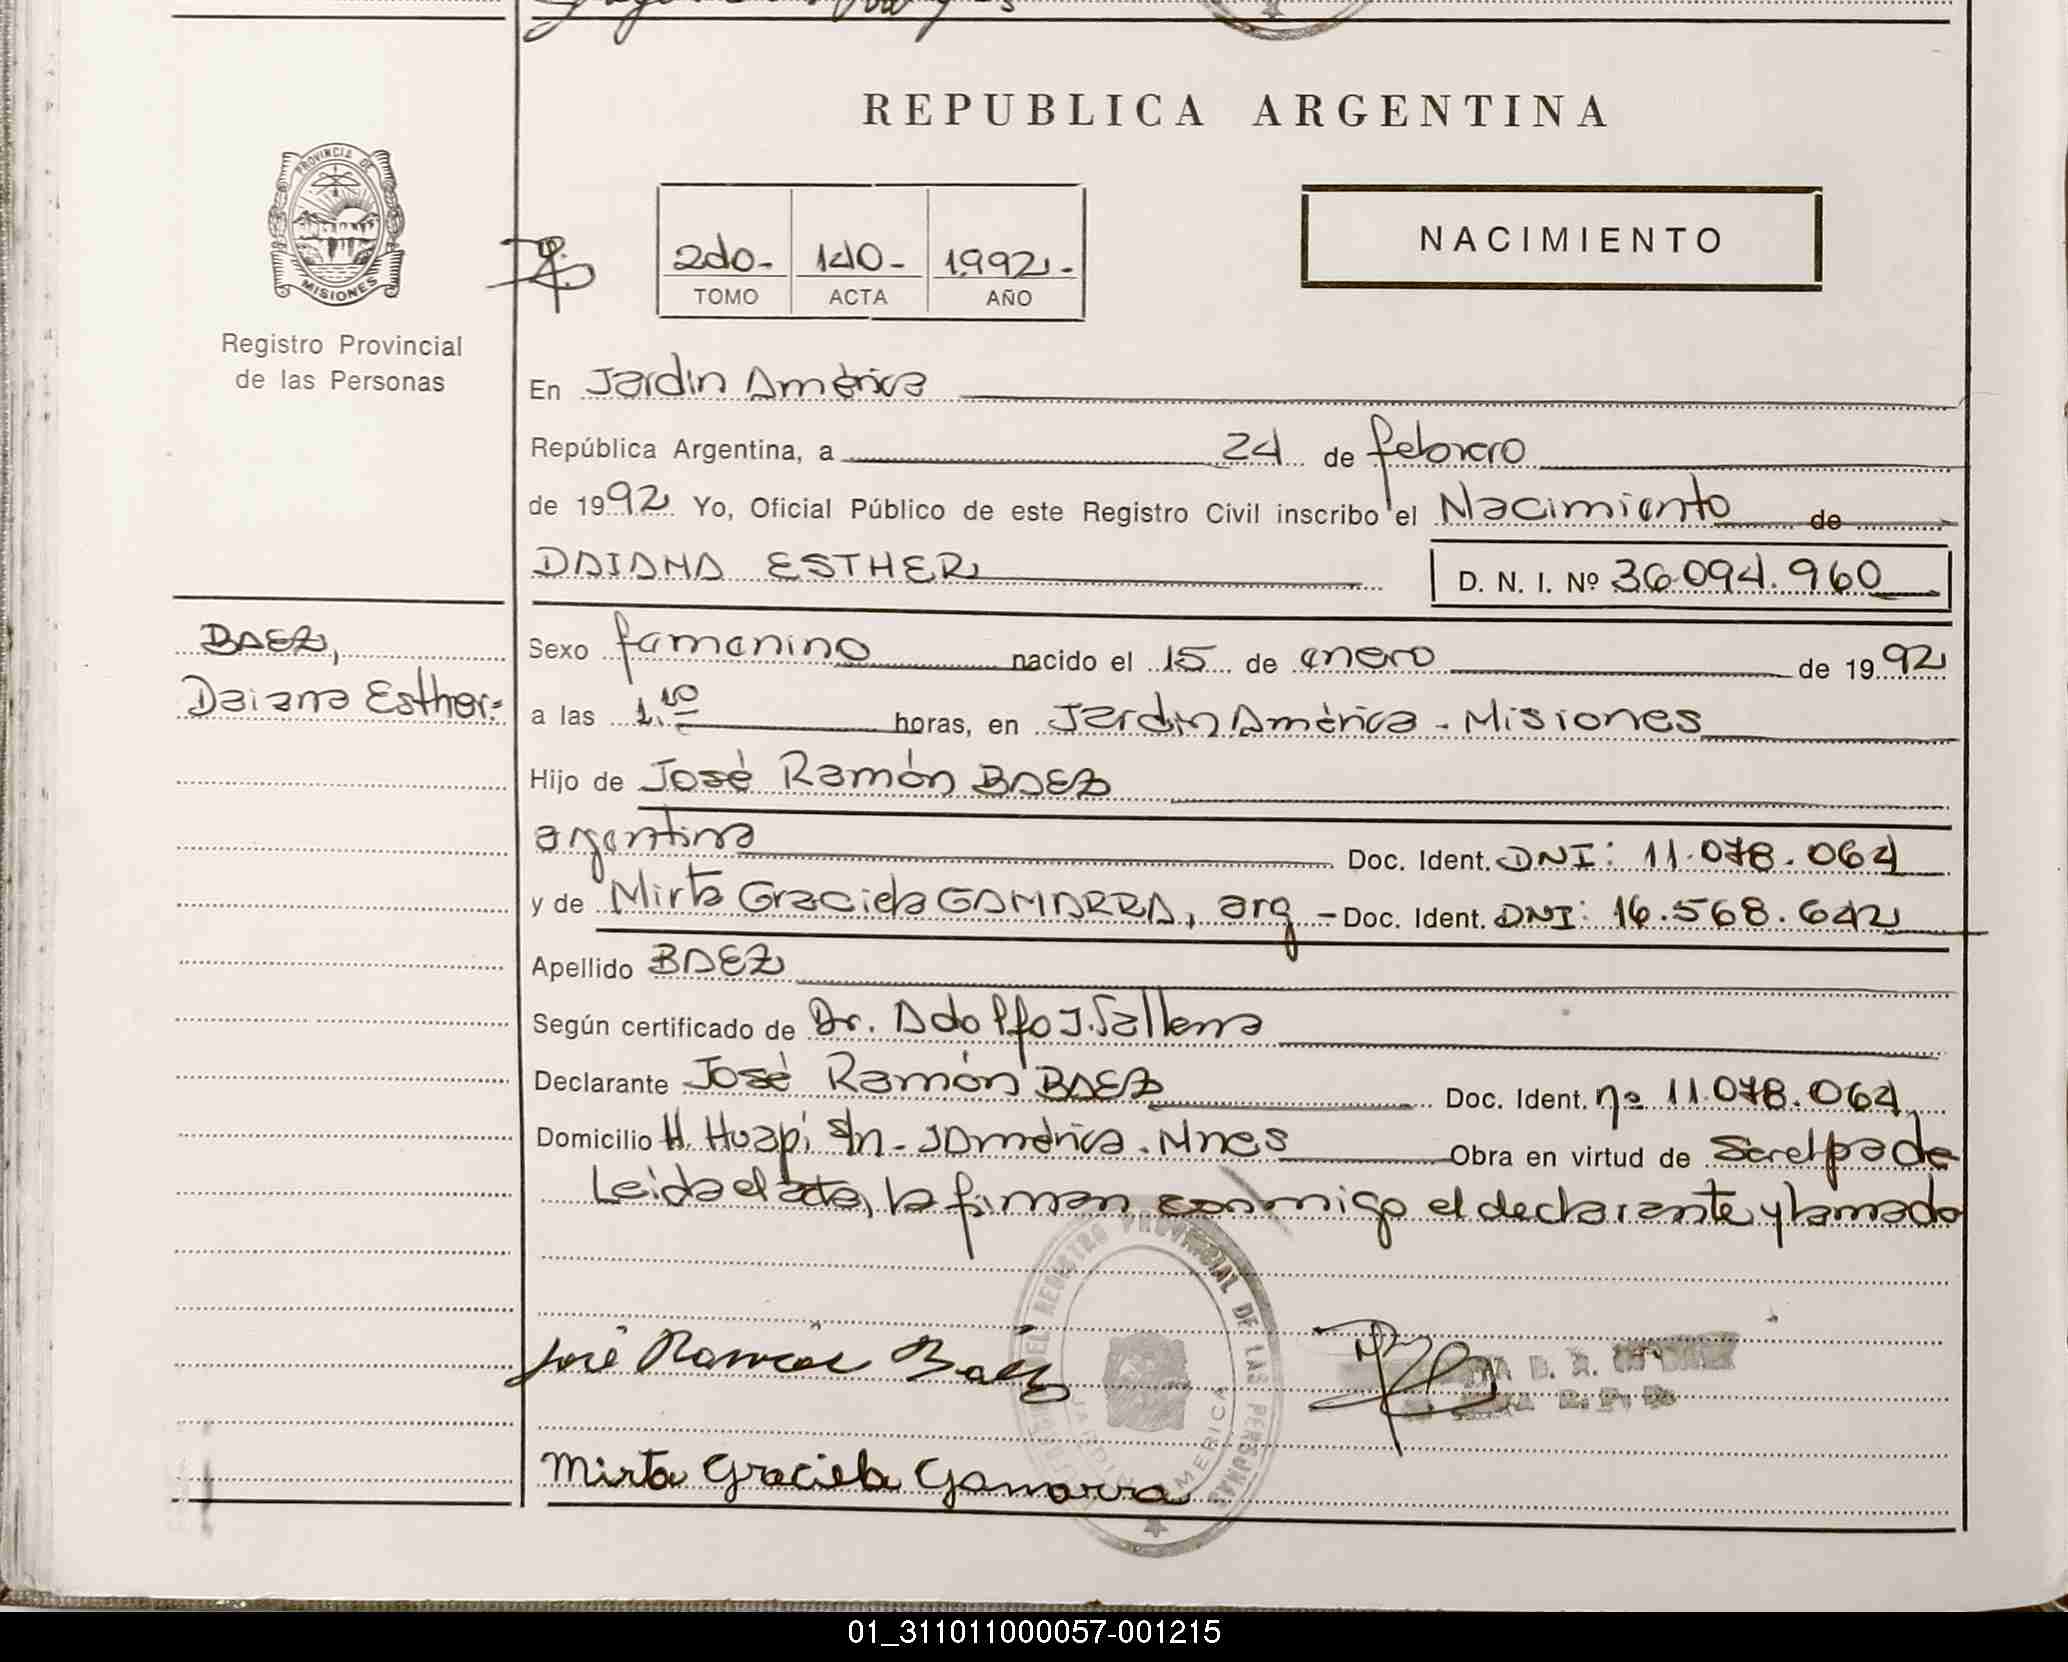 REPUBLICA ARGENTINA
PROVINCIA DE
MISIONES
Registro Provincial
de las Personas
2do- 140- 1992-
TOMO ACTA AÑO
NACIMIENTO
En Jardin América
República Argentina, a 24 de febrero
de 1992 Yo, Oficial Público de este Registro Civil inscribo el Nacimiento de
DAIANA ESTHER D. N. I. Nº 36.094.960
BAEZ,
Daiana Esther.-
Sexo femenino nacido el 15 de enero de 1992
a las 1.10 horas, en Jardin América - Misiones
Hijo de José Ramón BAEZ
argentina Doc. Ident. DNI: 11.078.064
y de Mirta Graciela GAMARRA, arg - Doc. Ident. DNI: 16.568.642
Apellido BAEZ
Según certificado de Dr. Adolfo J.
Declarante José Ramón BAEZ Doc. Ident. nº 11.078.064
Domicilio N. Huapi s/n - J América. Mnes Obra en virtud de Ser el padre
Leida el acta, la firman conmigo el declarante y la madre
REGISTRO PROVINCIAL DE LAS PERSONAS
JARDIN AMERICA
José Ramón Baez
Mirta Graciela Gamarra
01_311011000057-001215